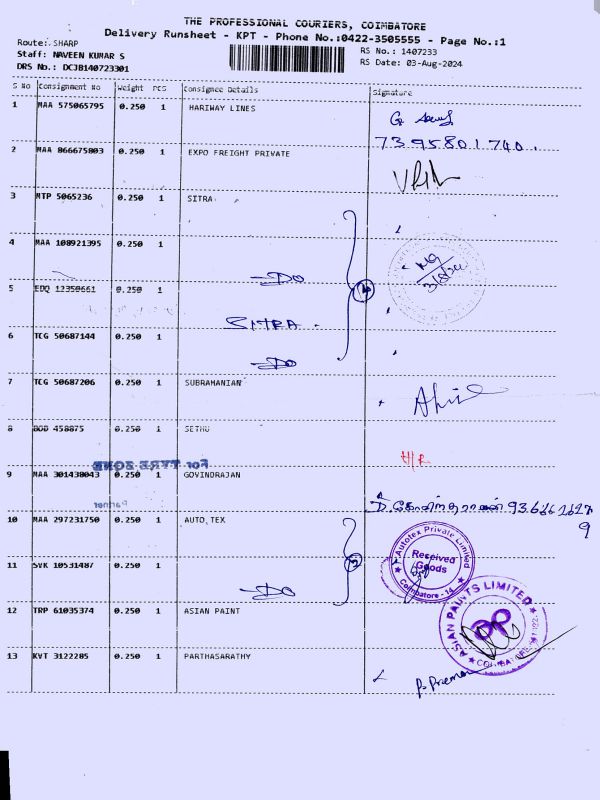 THE PROFESSIONAL COURIERS, COIMBATORE
Delivery Runsheet - KPT - Phone No.:0422-3505555 - Page No.:1
Route: SHARP
Staff: NAVEEN KUMAR S
DRS No.: DCJB140723301
RS No.: 1407233
RS Date: 03-Aug-2024
S No Consignment No Weight PCS Consignee Details Signature
1 MAA 575065795 0.250 1 HARIWAY LINES
7395801740.
2 MAA 866675803 0.250 1 EXPO FREIGHT PRIVATE
3 MTP 5065236 0.250 1 SITRA
4 MAA 108921395 0.250 1
DO
5 EDQ 12350661 0.250 1
SITRA.
6 TCG 50687144 0.250 1
DO
7 TCG 50687206 0.250 1 SUBRAMANIAN
8 BOD 458875 0.250 1 SETHU
For TYRE ZONE
9 MAA 301430043 0.250 1 GOVINDRAJAN
Partner
10 MAA 297231750 0.250 1 AUTO,TEX
Autotex Private Limited
Received
Goods
Coimbatore - 14
11 SVK 10531487 0.250 1
DO
12 TRP 61035374 0.250 1 ASIAN PAINT
ASIAN PAINTS LIMITED
13 KVT 3122285 0.250 1 PARTHASARATHY